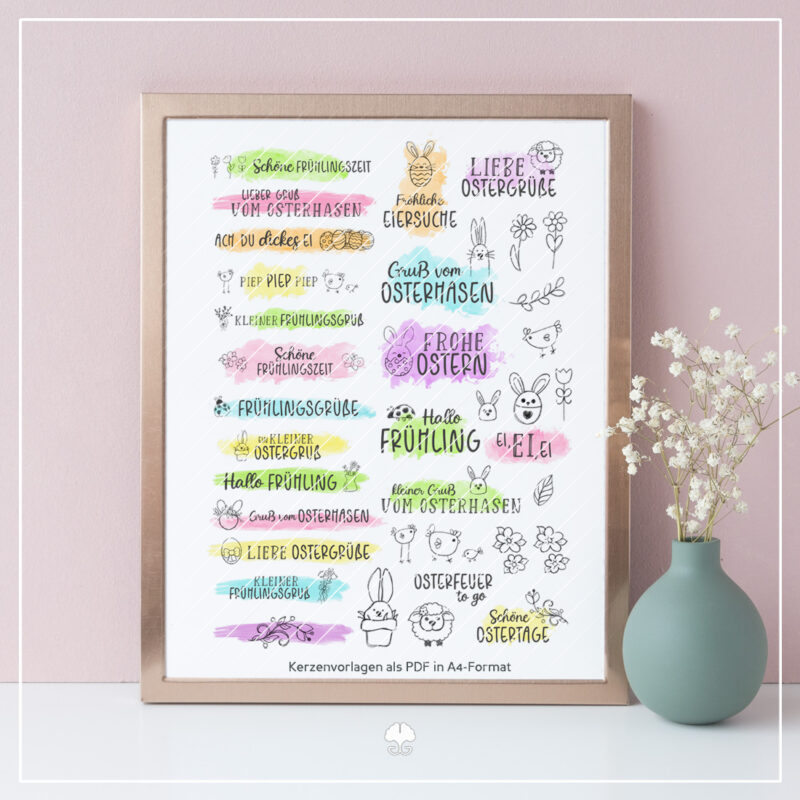 Schöne FRÜHLINGSZEIT
LIEBER GRUß
VOM OSTERHASEN
ACH DU dickes EI
PIEP PIEP PIEP
KLEINER FRÜHLINGSGRUß
Schöne
FRÜHLINGSZEIT
FRÜHLINGSGRÜßE
EIN KLEINER
OSTERGRUß
Hallo FRÜHLING
Gruß vom OSTERHASEN
LIEBE OSTERGRÜßE
KLEINER
FRÜHLINGSGRUß
Fröhliche
EIERSUCHE
LIEBE
OSTERGRÜßE
Gruß vom
OSTERHASEN
FROHE
OSTERN
Hallo
FRÜHLING
EI, EI, EI
kleiner Gruß
VOM OSTERHASEN
OSTERFEUER
to go
Schöne
OSTERTAGE
Kerzenvorlagen als PDF in A4-Format